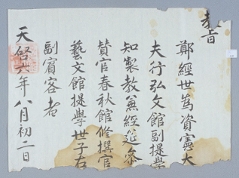 教旨
鄭經世爲資憲大
夫行弘文館副提學
知製教兼經筵參
贊官春秋館修撰官
藝文館提學世子右
副賓客者
天啓六年八月初二日